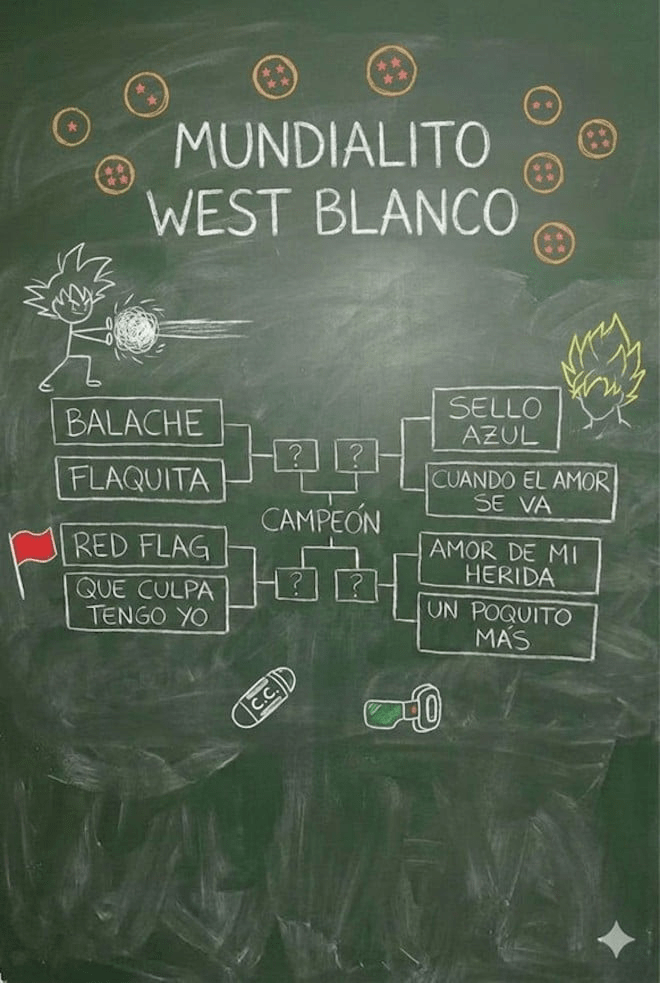 MUNDIALITO
WEST BLANCO
BALACHE
FLAQUITA
RED FLAG
QUE CULPA
TENGO YO
?
?
CAMPEÓN
?
?
SELLO
AZUL
CUANDO EL AMOR
SE VA
AMOR DE MI
HERIDA
UN POQUITO
MÁS
C.C.